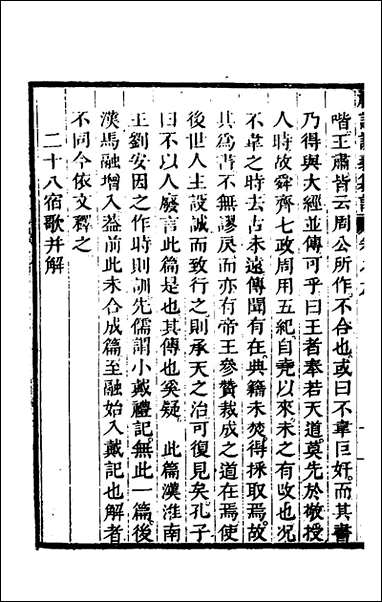 喈王肅皆云周公所作不合也或曰不韋巨奸而其書
乃得與大經並傳可乎曰王者奉若天道莫先於敬授
人時故舜齊七政周用五紀自堯以來未之有改也況
不韋之時去古未遠傳聞有在典籍未焚得採取焉故
其爲書不無謬戾而亦有帝王參贊裁成之道在焉使
後世人主設誠而致行之則承天之治可復見矣孔子
曰不以人廢言此篇是也其傳也奚疑　此篇漢淮南
王劉安因之作時則訓先儒謂小戴禮記無此一篇後
漢馬融增入蓋前此未合成篇至融始入戴記也解者
不同今依文釋之
二十八宿歌并解